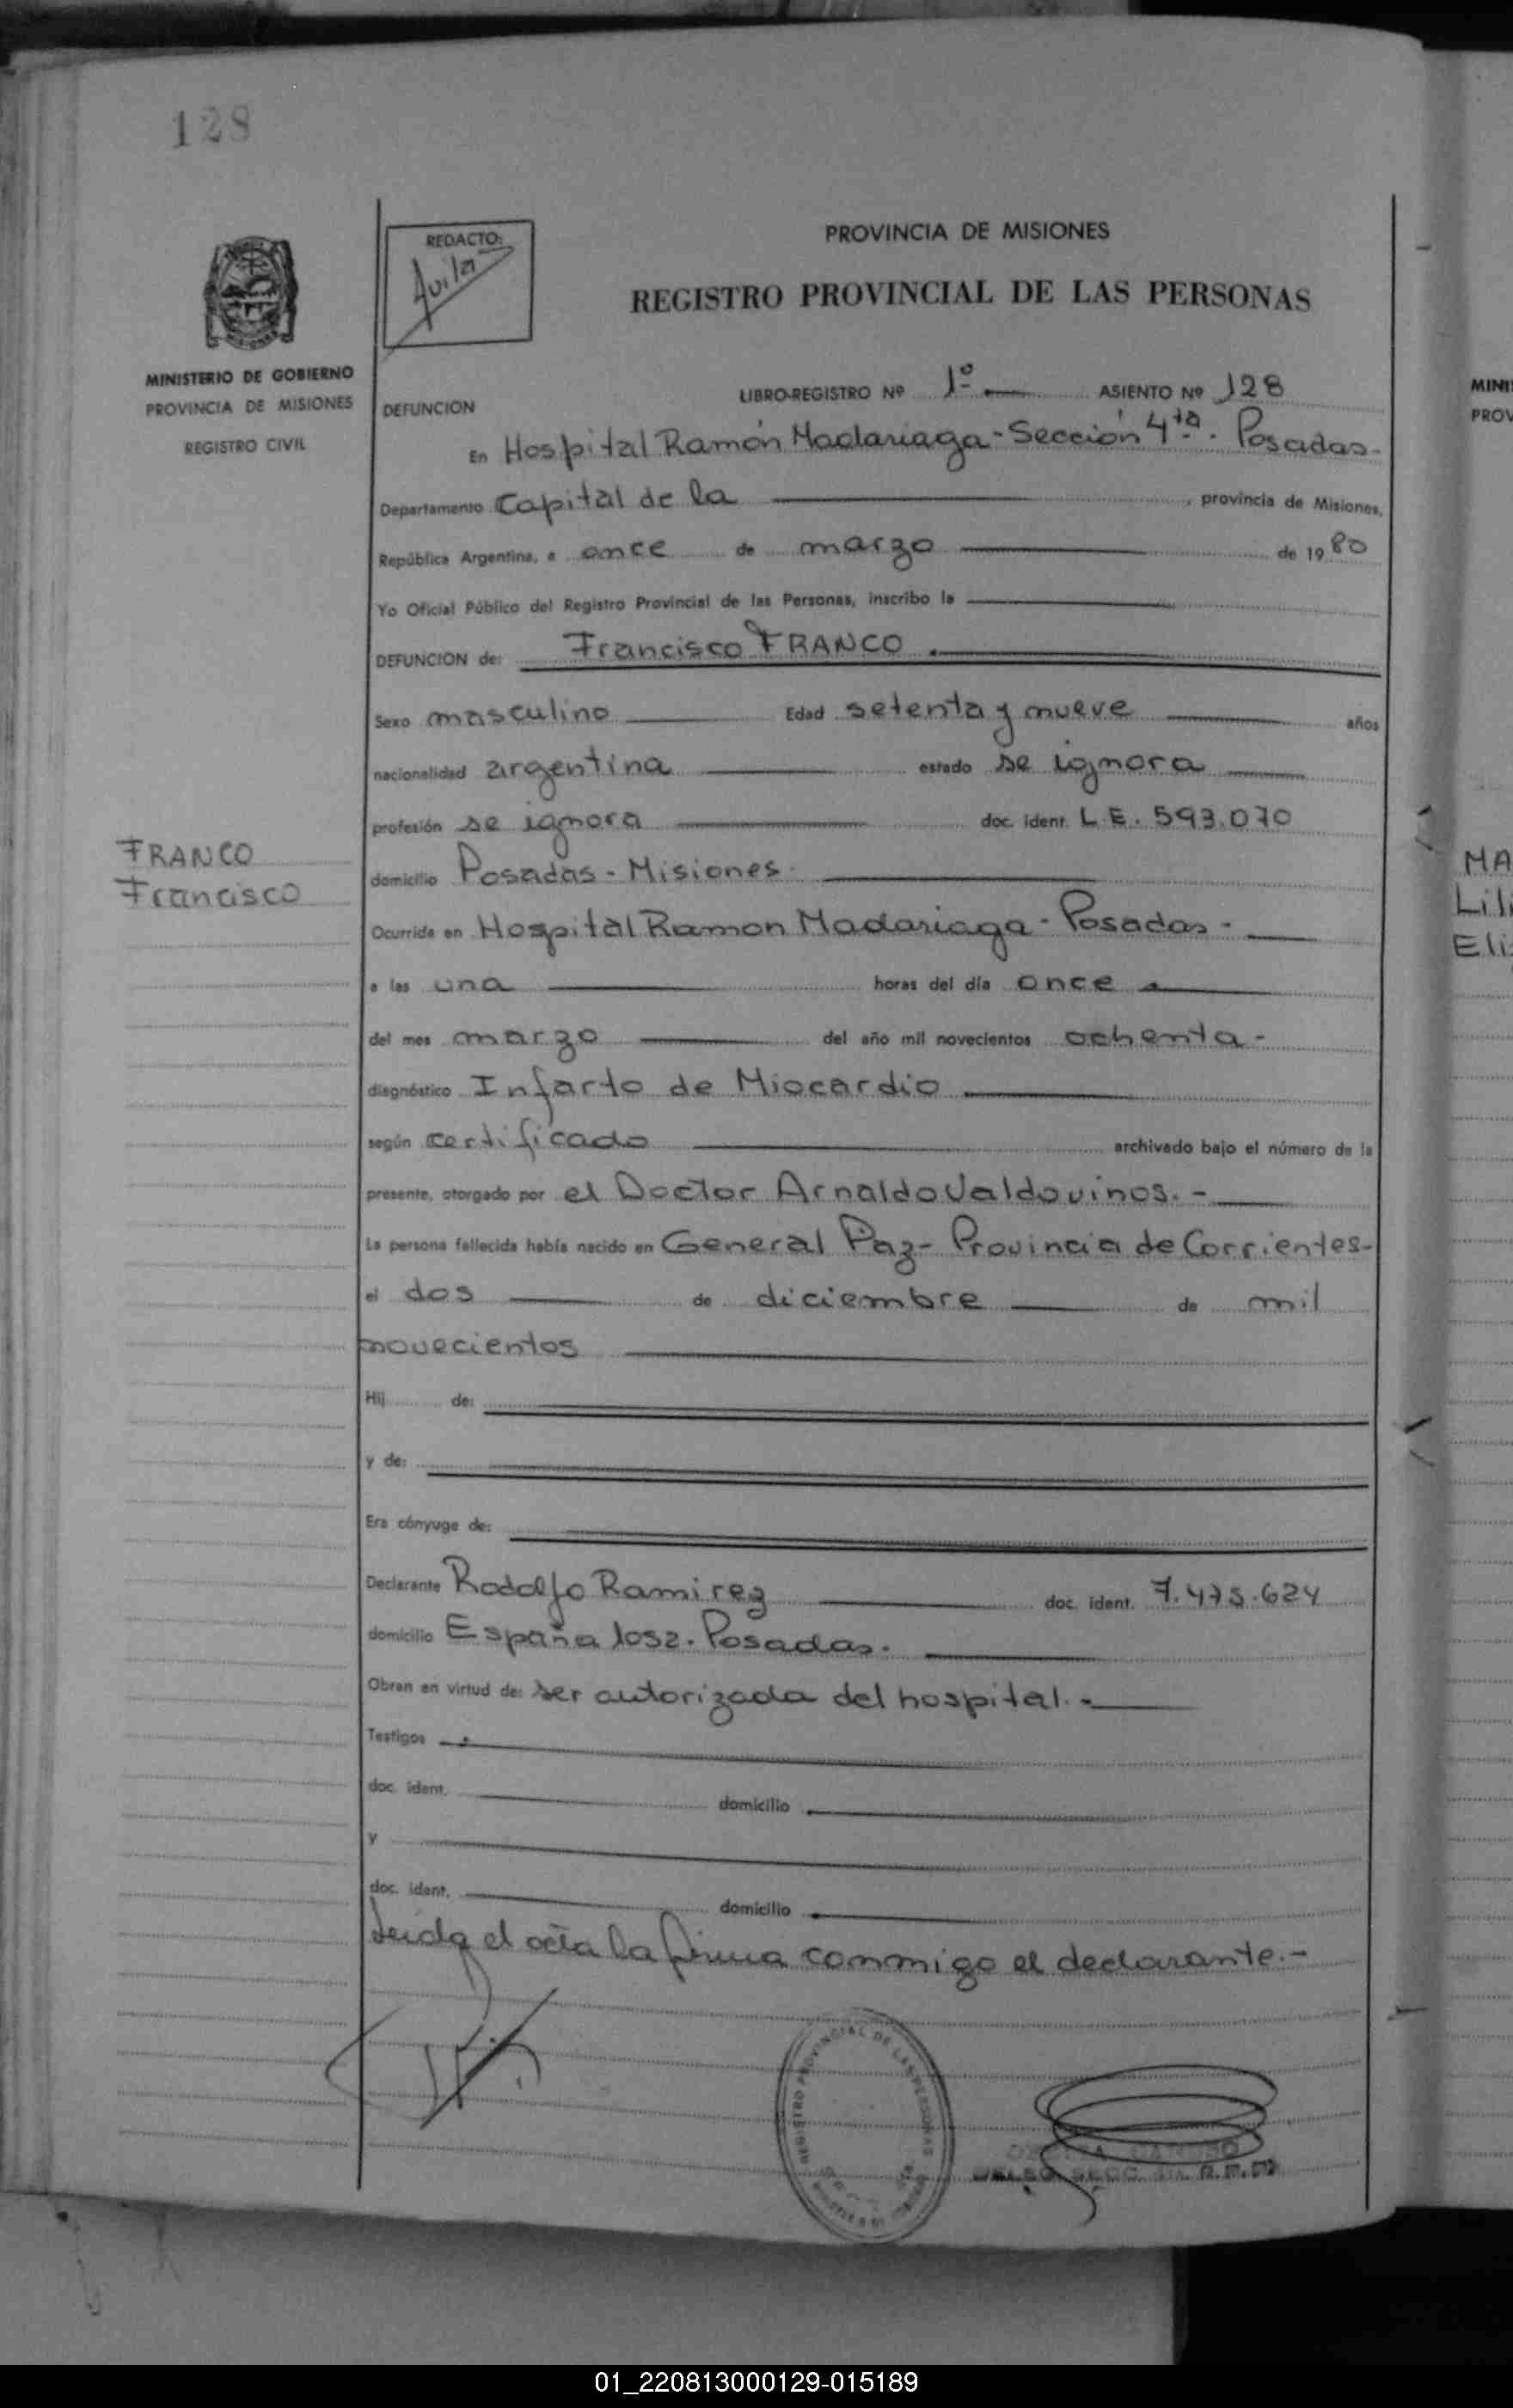 128
REDACTO:
Avila
PROVINCIA DE MISIONES
REGISTRO PROVINCIAL DE LAS PERSONAS
MINISTERIO DE GOBIERNO
PROVINCIA DE MISIONES
REGISTRO CIVIL
LIBRO-REGISTRO Nº 1º ASIENTO Nº 128
DEFUNCION
En Hospital Ramón Madariaga - Sección 4ta. Posadas-
Departamento Capital de la , provincia de Misiones,
República Argentina, a once de marzo de 1980
Yo Oficial Público del Registro Provincial de las Personas, inscribo la
DEFUNCION de: Francisco FRANCO.
Sexo masculino Edad setenta y nueve años
nacionalidad argentina estado se ignora
profesión se ignora doc. ident. L.E. 593.070
FRANCO
Francisco
domicilio Posadas - Misiones-
Ocurrida en Hospital Ramon Madariaga - Posadas -
a las una horas del día once
del mes marzo del año mil novecientos ochenta-
diagnóstico Infarto de Miocardio
según certificado archivado bajo el número de la
presente, otorgado por el Doctor Arnaldo Valdovinos.-
La persona fallecida había nacido en General Paz- Provincia de Corrientes-
el dos de diciembre de mil
novecientos
Hij de:
y de:
Era cónyuge de:
Declarante Rodolfo Ramirez doc. ident. 7.475.624
domicilio España 1052. Posadas.
Obran en virtud de: ser autorizada del hospital.-
Testigos
doc. ident. domicilio
y
doc. ident. domicilio
Leida el acta la firma conmigo el declarante.-
REGISTRO PROVINCIAL DE LAS PERSONAS
MINI
PROV
MA
Lili
Eli
01_220813000129-015189